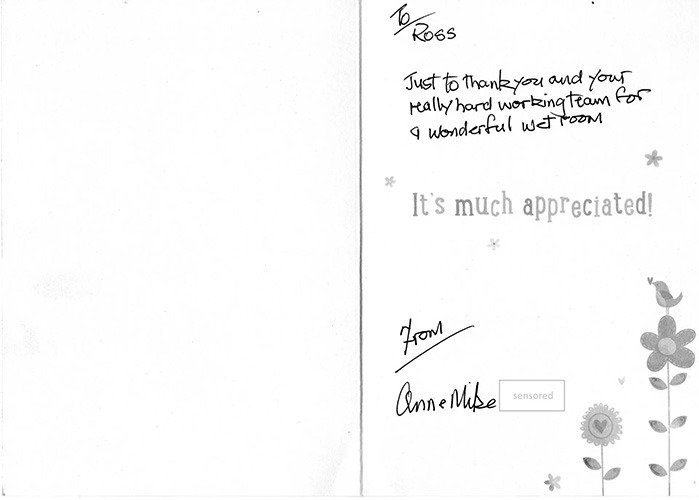 To
Ross
Just to thank you and your
really hard working team for
a wonderful wet room
It's much appreciated!
From
Anne Mike
sensored